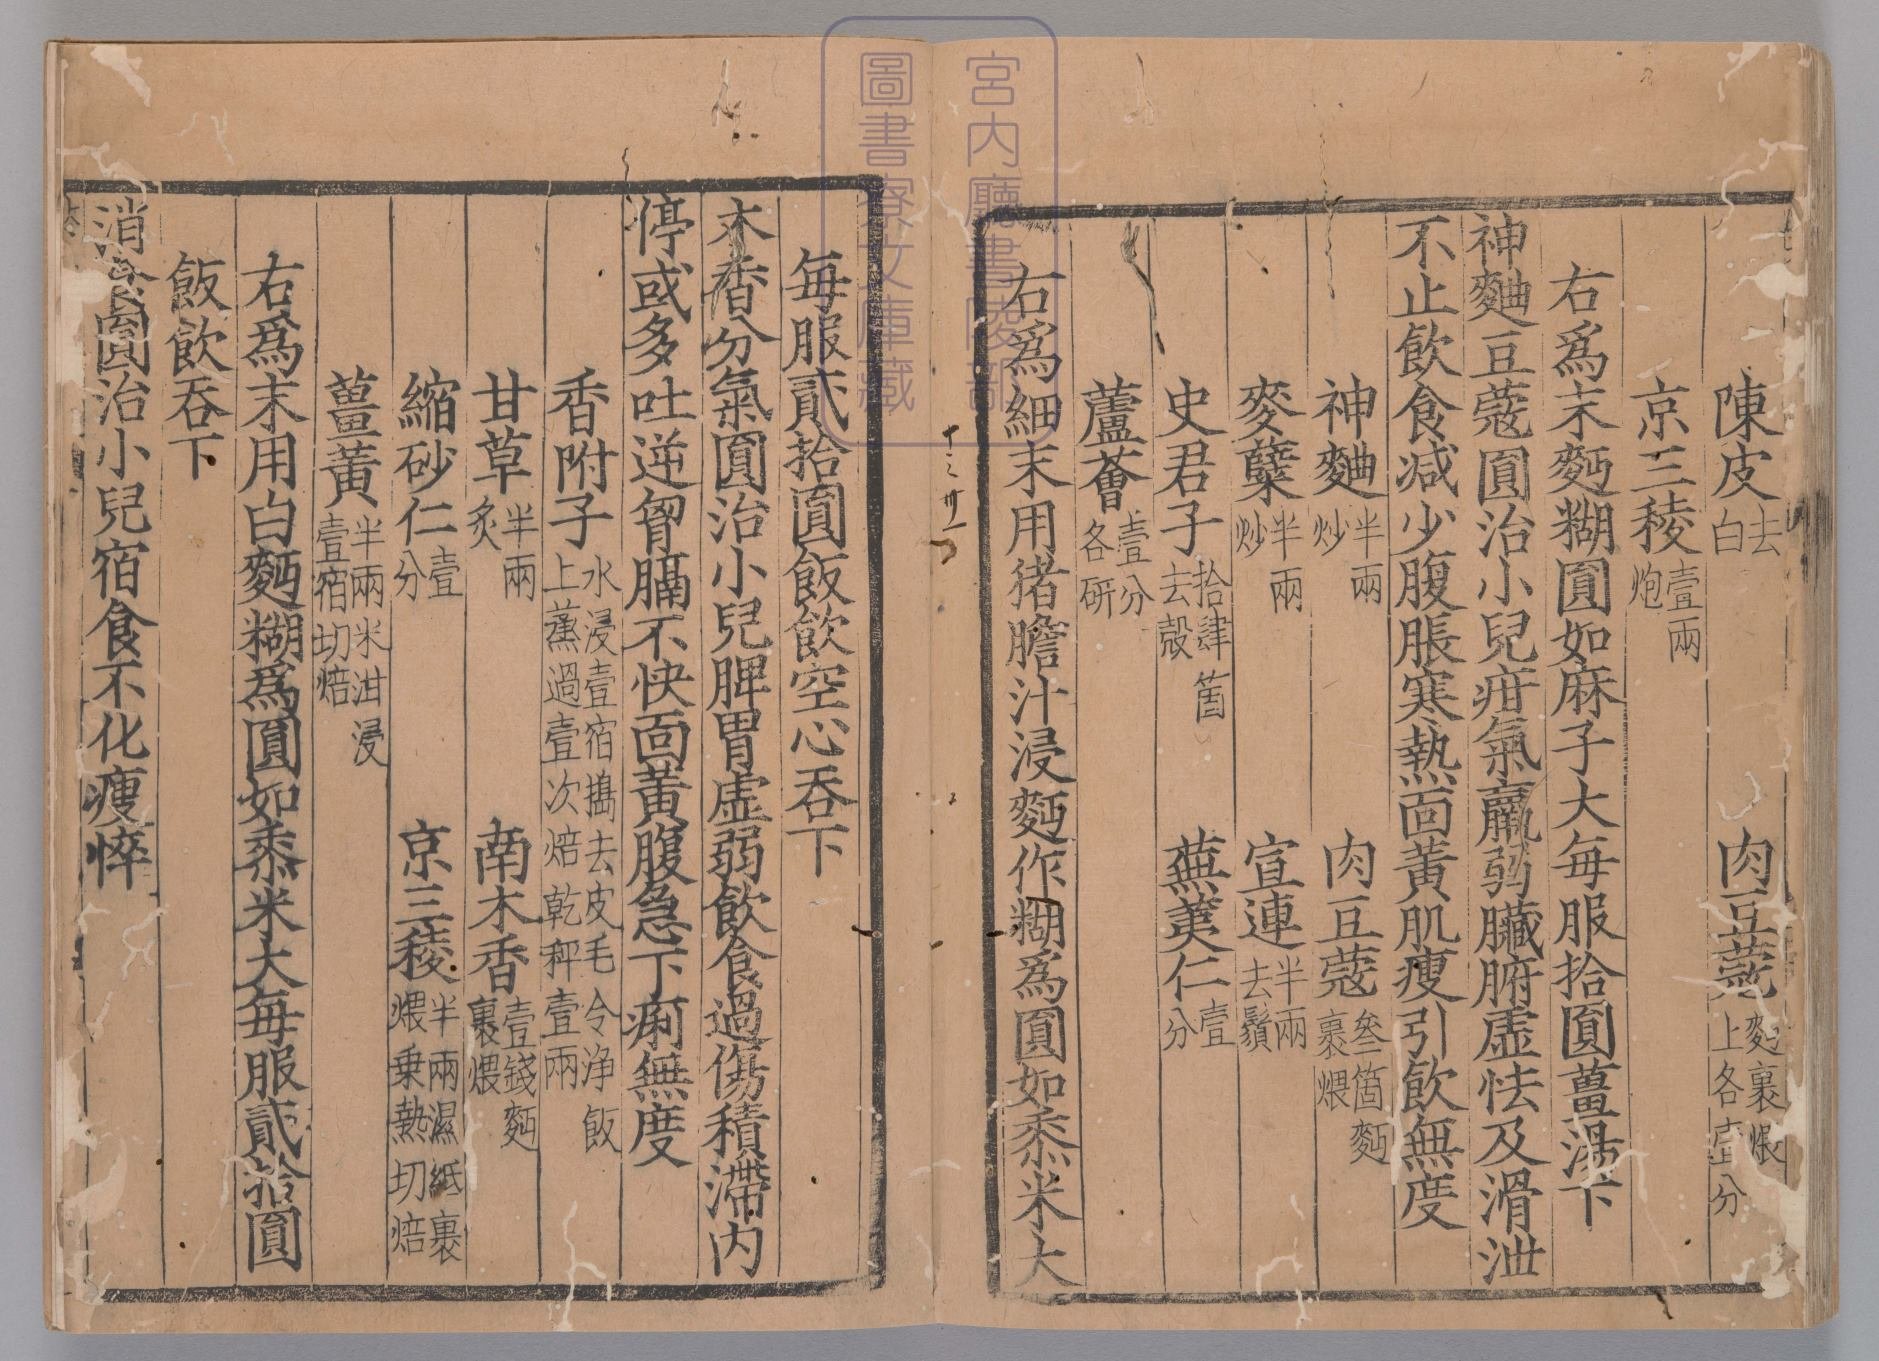 陳皮去白　肉豆蔻麪裹煨上各壹分
京三稜壹兩炮
右爲末麪糊圓如麻子大每服拾圓薑湯下
神麯豆蔻圓治小兒疳氣羸弱臟腑虛怯及滑泄
不止飲食減少腹脹寒熱面黃肌瘦引飲無度
神麯半兩炒　肉豆蔻叁箇麪裹煨
麥糵半兩炒　宣連半兩去鬚
史君子拾肆箇去殼　蕪荑仁壹分
蘆薈壹分各研
右爲細末用猪膽汁浸麪作糊爲圓如黍米大
每服貳拾圓飯飲空心吞下
木香分氣圓治小兒脾胃虛弱飲食過傷積滯內
停或多吐逆胷膈不快面黃腹急下痢無度
香附子水浸壹宿擣去皮毛令净飯上蒸過壹次焙乾秤壹兩
甘草半兩炙　南木香壹錢麪裹煨
縮砂仁壹分　京三稜半兩濕紙裹煨乗熱切焙
薑黃半兩米泔浸壹宿切焙
右爲末用白麪糊爲圓如黍米大每服貳拾圓
飯飲吞下
消食圓治小兒宿食不化瘦悴
宮內廳書陵部
圖書寮文庫藏